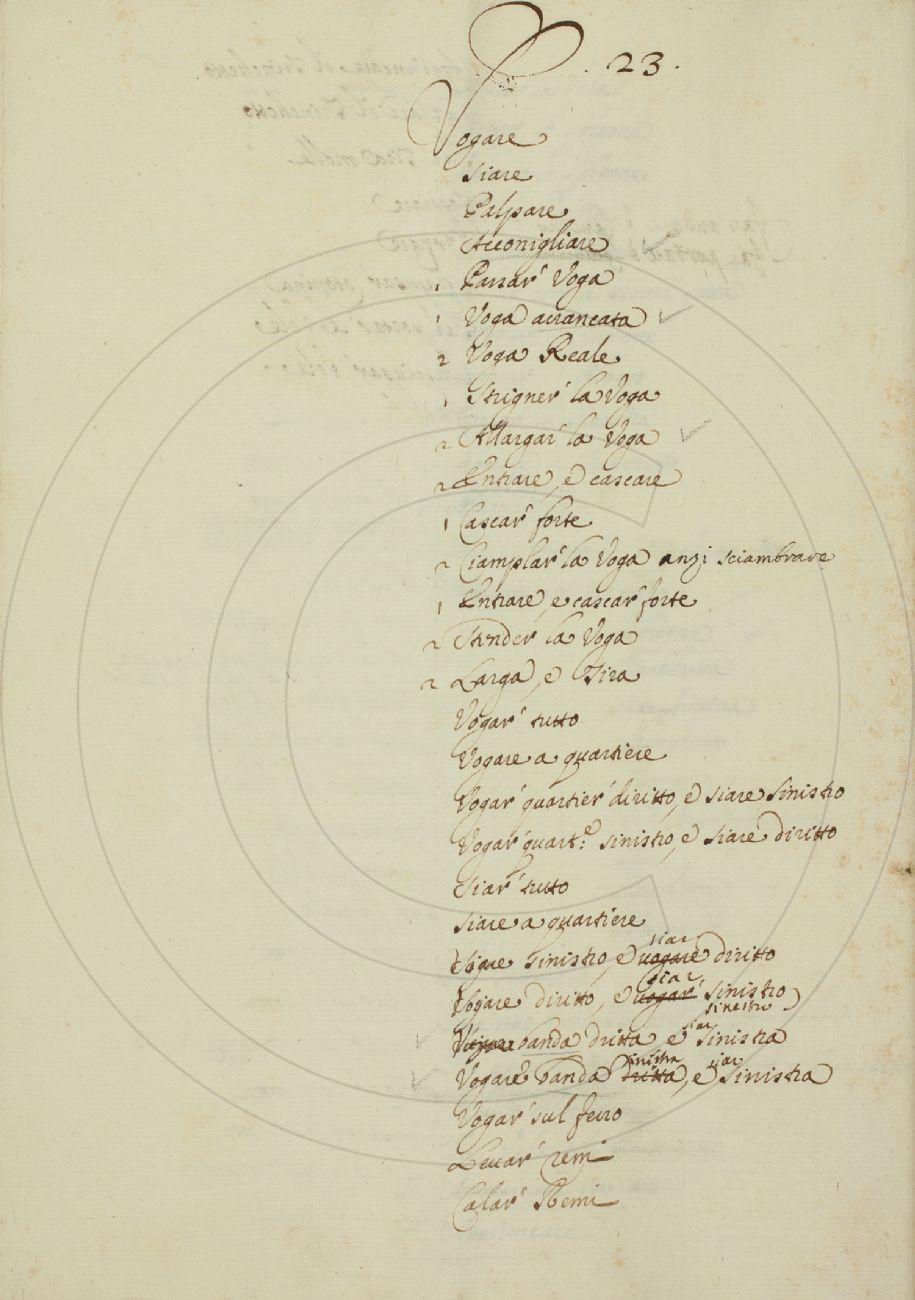 . 23 .
Vogare
Siare
Palpare
Acconigliare
1 Passar' Voga
1 Voga arrancata
2 Voga Reale
1 Strigner' la Voga
2 Allargar' la Voga
2 Entrare, e cascare
1 Cascar' forte
2 Ciamplar' la Voga anzi sciambrare
1 Entrare, e cascar' forte
2 Stender la Voga
2 Larga, e Tira
Vogar' tutto
Vogare a quartiere
Vogar' quartier' diritto, e siare sinistro
Vogar' quart.e sinistro, e siare diritto
Siar' tutto
Siare a quartiere
siar
Vogare sinistro, e vogare diritto
siar
Vogare diritto, e vogar' sinistro
sinestro
siar
banda dritta e sinistra
sinistra siar
Vogare banda dritta, e sinistra
Vogar' sul ferro
Levar' remi
Calar' Remi